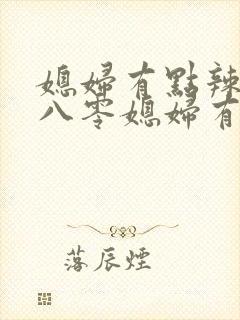 媳婦有點辣
八零媳婦有
落辰煙